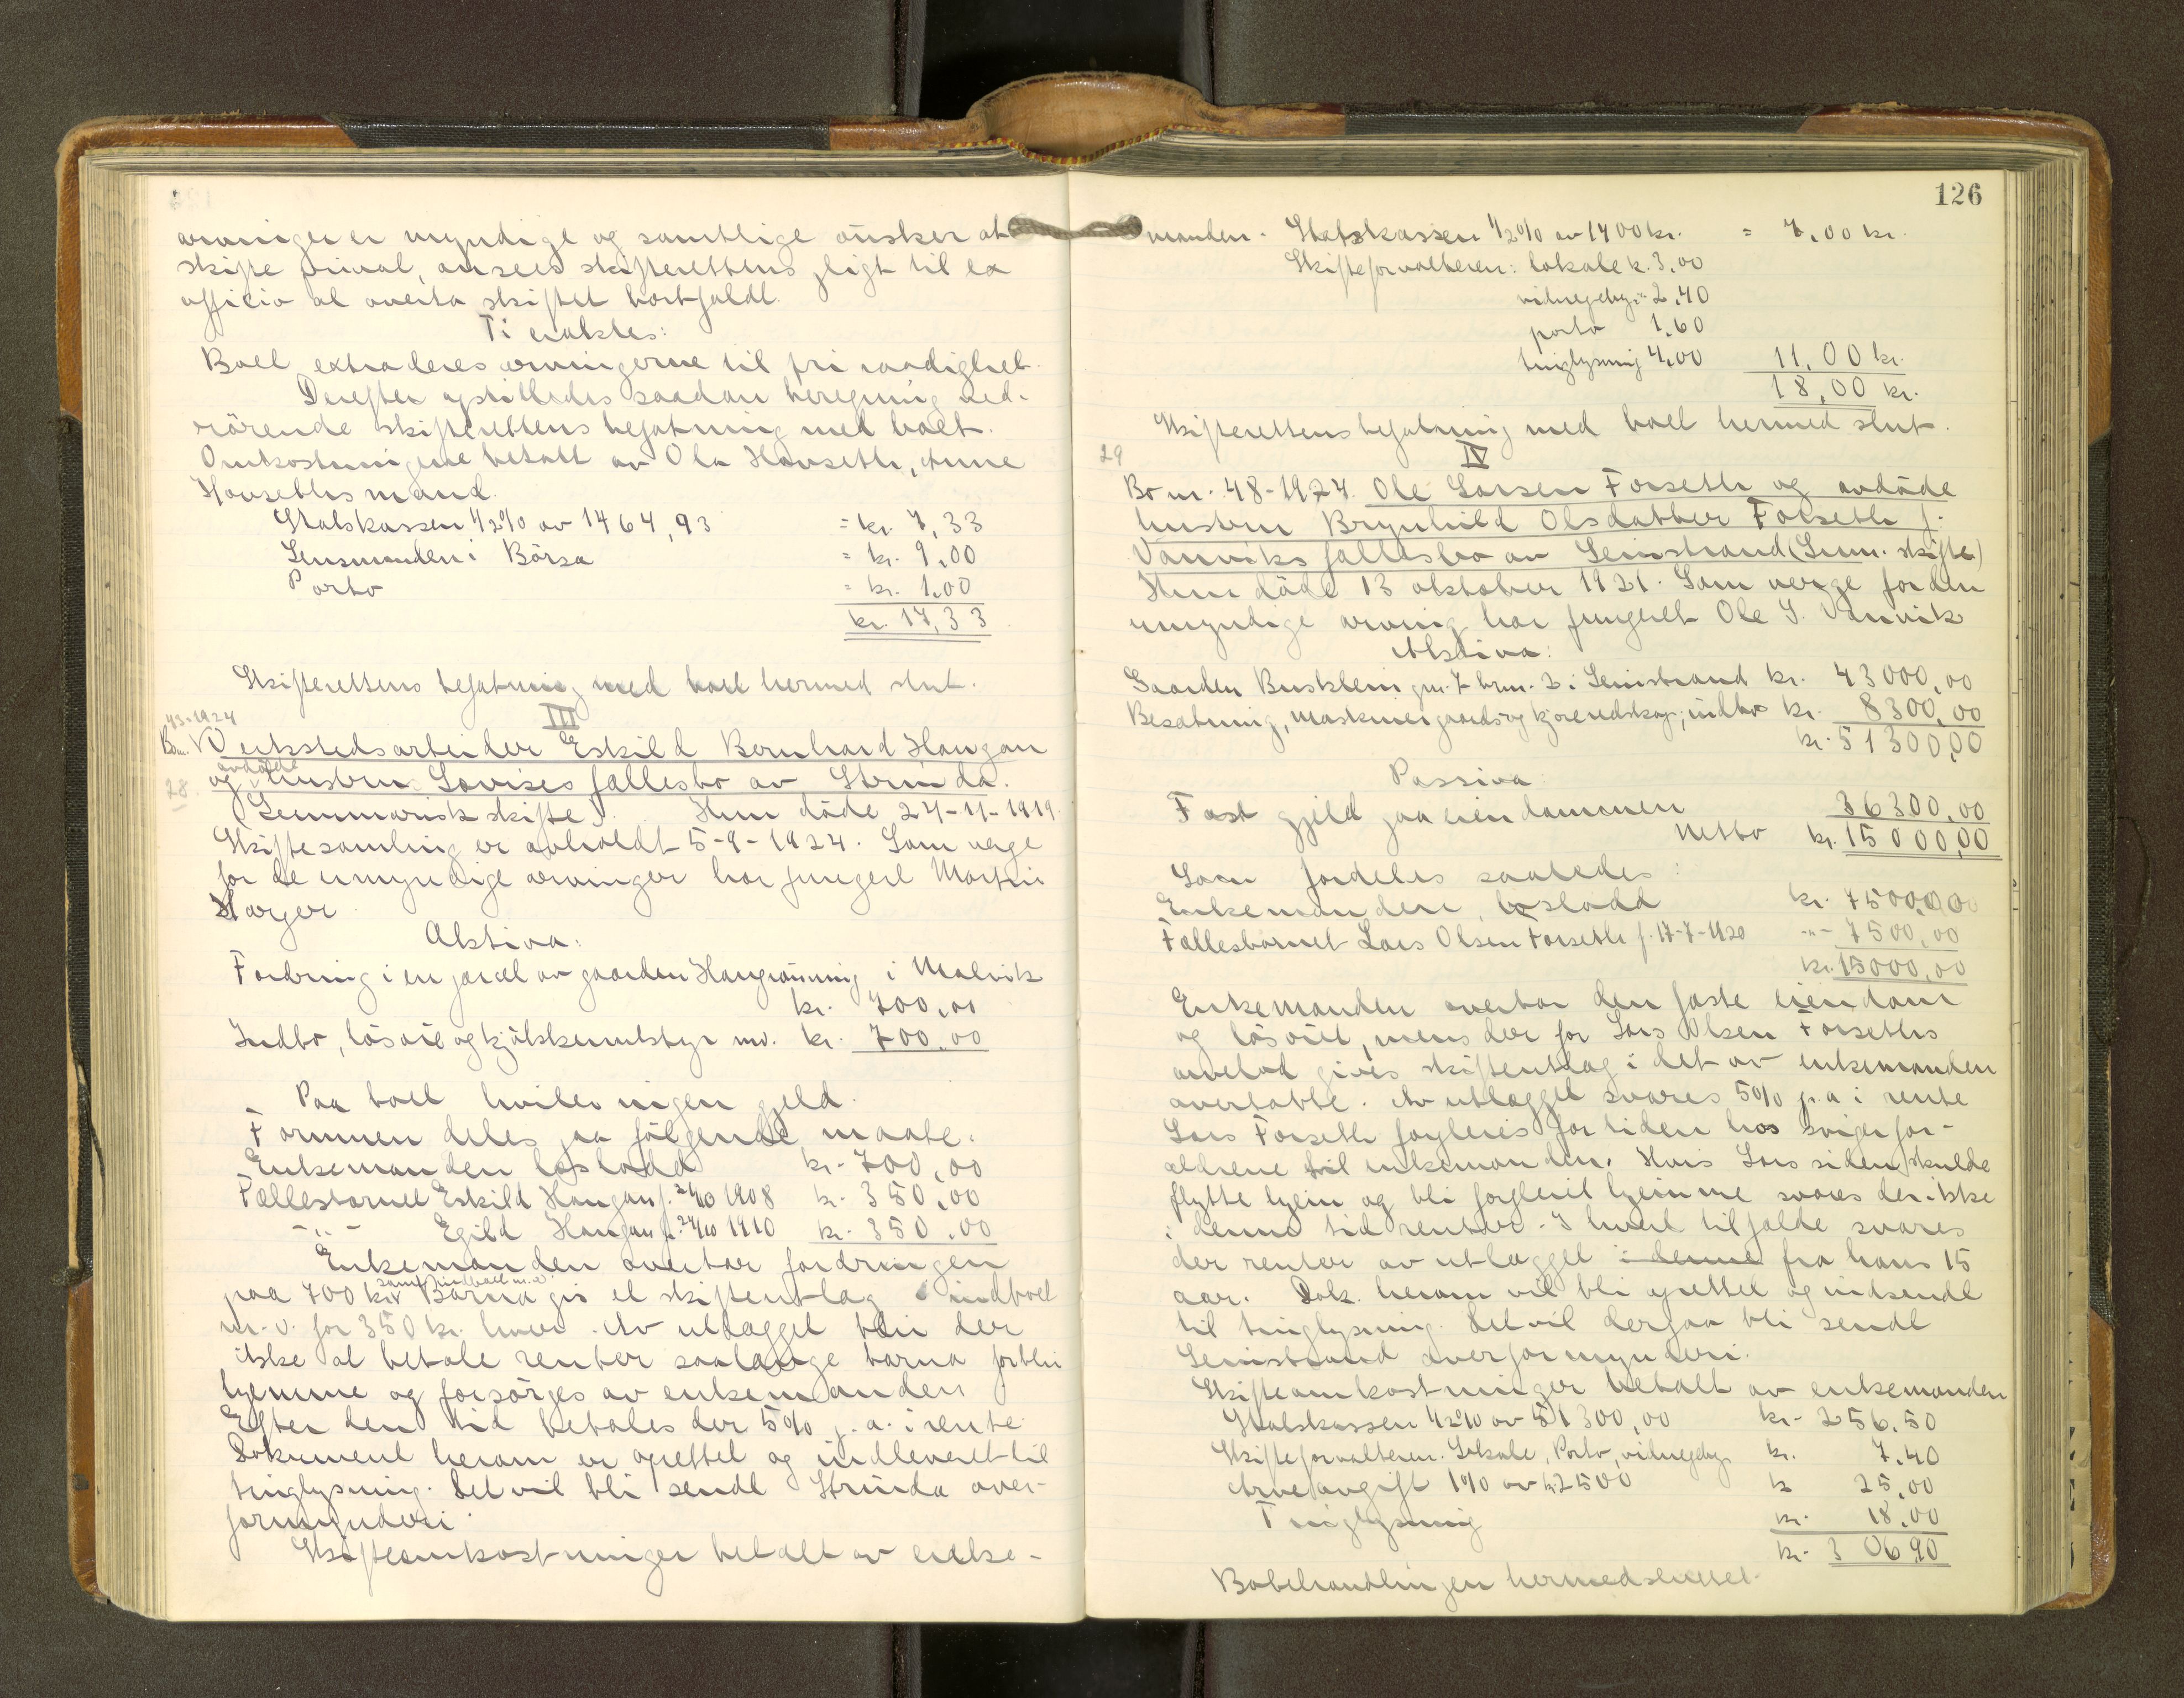 arvinger er myndige og samtlige önsker at
skifte privat, ansees skifterettens pligt til ex
officio at overta skiftet bortfaldt.
Ti eraktes:
Boet extraderes arvingerne til fri raadighet.
Derefter opstilledes saadan beregning ved-
rörende skifterettens befatning med boet.
Omkostningene betalt av Ola Hovseth, Anne
Hovseths mand.
Statskassen 1/2% av 1464,93 = kr. 7,33
Lensmanden i Börsa = kr. 9,00
Porto = kr. 1,00
kr. 17,33
Skifterettens befatning med boet hermed slut.
III
43-1924
Bo nr. Verkstedsarbeider Eskild Bernhard Haugan
avdöde
og hustru Lovises fællesbo av Strinda.
28.
(Summarisk skifte). Hun döde 24-11-1919.
Skiftesamling er avholdt 5-9-1924. Som verge
for de umyndige arvinger har fungert Martin
Aktiva:
Fordring i en parcel av gaarden Haugrönning i Malvik
kr. 700,00
Indbo, lösöre og kjökkenutstyr mv. kr. 700,00
Paa boet hviler ingen gjeld.
Formuen deles paa fölgende maate.
Enkemanden boslodd kr. 700,00
Fællesbarnet Eskild Haugan f. 24/10 1908 kr. 350,00
-"- Egild Haugan f. 24/10 1910 kr. 350,00
Enkemanden overtar fordringen
samt indboet m.v.
paa 700 kr. Barna gis et skifteutlæg i indboet
m.v. for 350 kr. hver. Av utlægget blir der
ikke at betale renter saalænge barna forblir
hjemme og forsörges av enkemanden
Efter den tid betales der 5% p.a. i rente.
Dokument herom er oprettet og indleveret til
tinglysning. Det vil bli sendt Strinda over-
formynderi.
Skifteomkostninger betalt av enke-
126
manden. Statskassen 1/2% av 1400 kr. = 7,00 kr.
Skifteforvalteren: lokale k. 3,00
vidnegeby. " 2,40
porto 1,60
tinglysning 4,00 11,00 kr.
18,00 kr.
Skifterettens befatning med boet hermed slut.
29 IV
Bo nr. 48-1924. Ole Larsen Forseth og avdöde
hustru Brynhild Olsdatter Forseth f.
Vanviks fællesbo av Leinstrand (Sum. skifte)
Hun döde 13 oktober 1921. Som verge for den
umyndige arving har fungert Ole J. Vanvik
Aktiva:
Gaarden Busklein gnr. 7 brnr. 2 i Leinstrand kr. 43000,00
Besætning, maskiner gaards og kjöreredskap, indbo kr. 8300,00
kr. 51300,00
Passiva
Fast gjeld paa eiendommen 36300,00
Netto kr. 15000,00
Som fordeles saaledes:
Enkemanden, boslodd kr. 7500,00
Fællesbarnet Lars Olsen Forseth f. 17-7-1920 -"- 7500,00
kr. 15000,00
Enkemanden overtar den faste eiendom
og lösöret, mens der for Lars Olsen Forseths
arvelod gives skifteutlæg i det av enkemanden
overtatte. Av utlægget svares 5% p.a i rente
Lars Forseth forpleies for tiden hos svigerfor-
ældrene til enkemanden. Hvis Lars siden skulde
flytte hjem og bli forpleiet hjemme svares der ikke
i denne tid renter. I hvert tilfælde svares
der renter av utlægget i denne fra hans 15
aar. Dok. herom vil bli oprettet og indsendt
til tinglysning. Det vil derpaa bli sendt
Leinstrand overformynderi.
Skifteomkostninger betalt av enkemanden
Statskassen 1/2% av 51300,00 kr. 256.50
Skifteforvalteren. Lokale, Porto, vidnegeby. kr. 7,40
Arveavgift 1% av kr. 2500 kr 25,00
Tinglysning kr. 18,00
kr. 306,90
Bobehandlingen hermed sluttet.